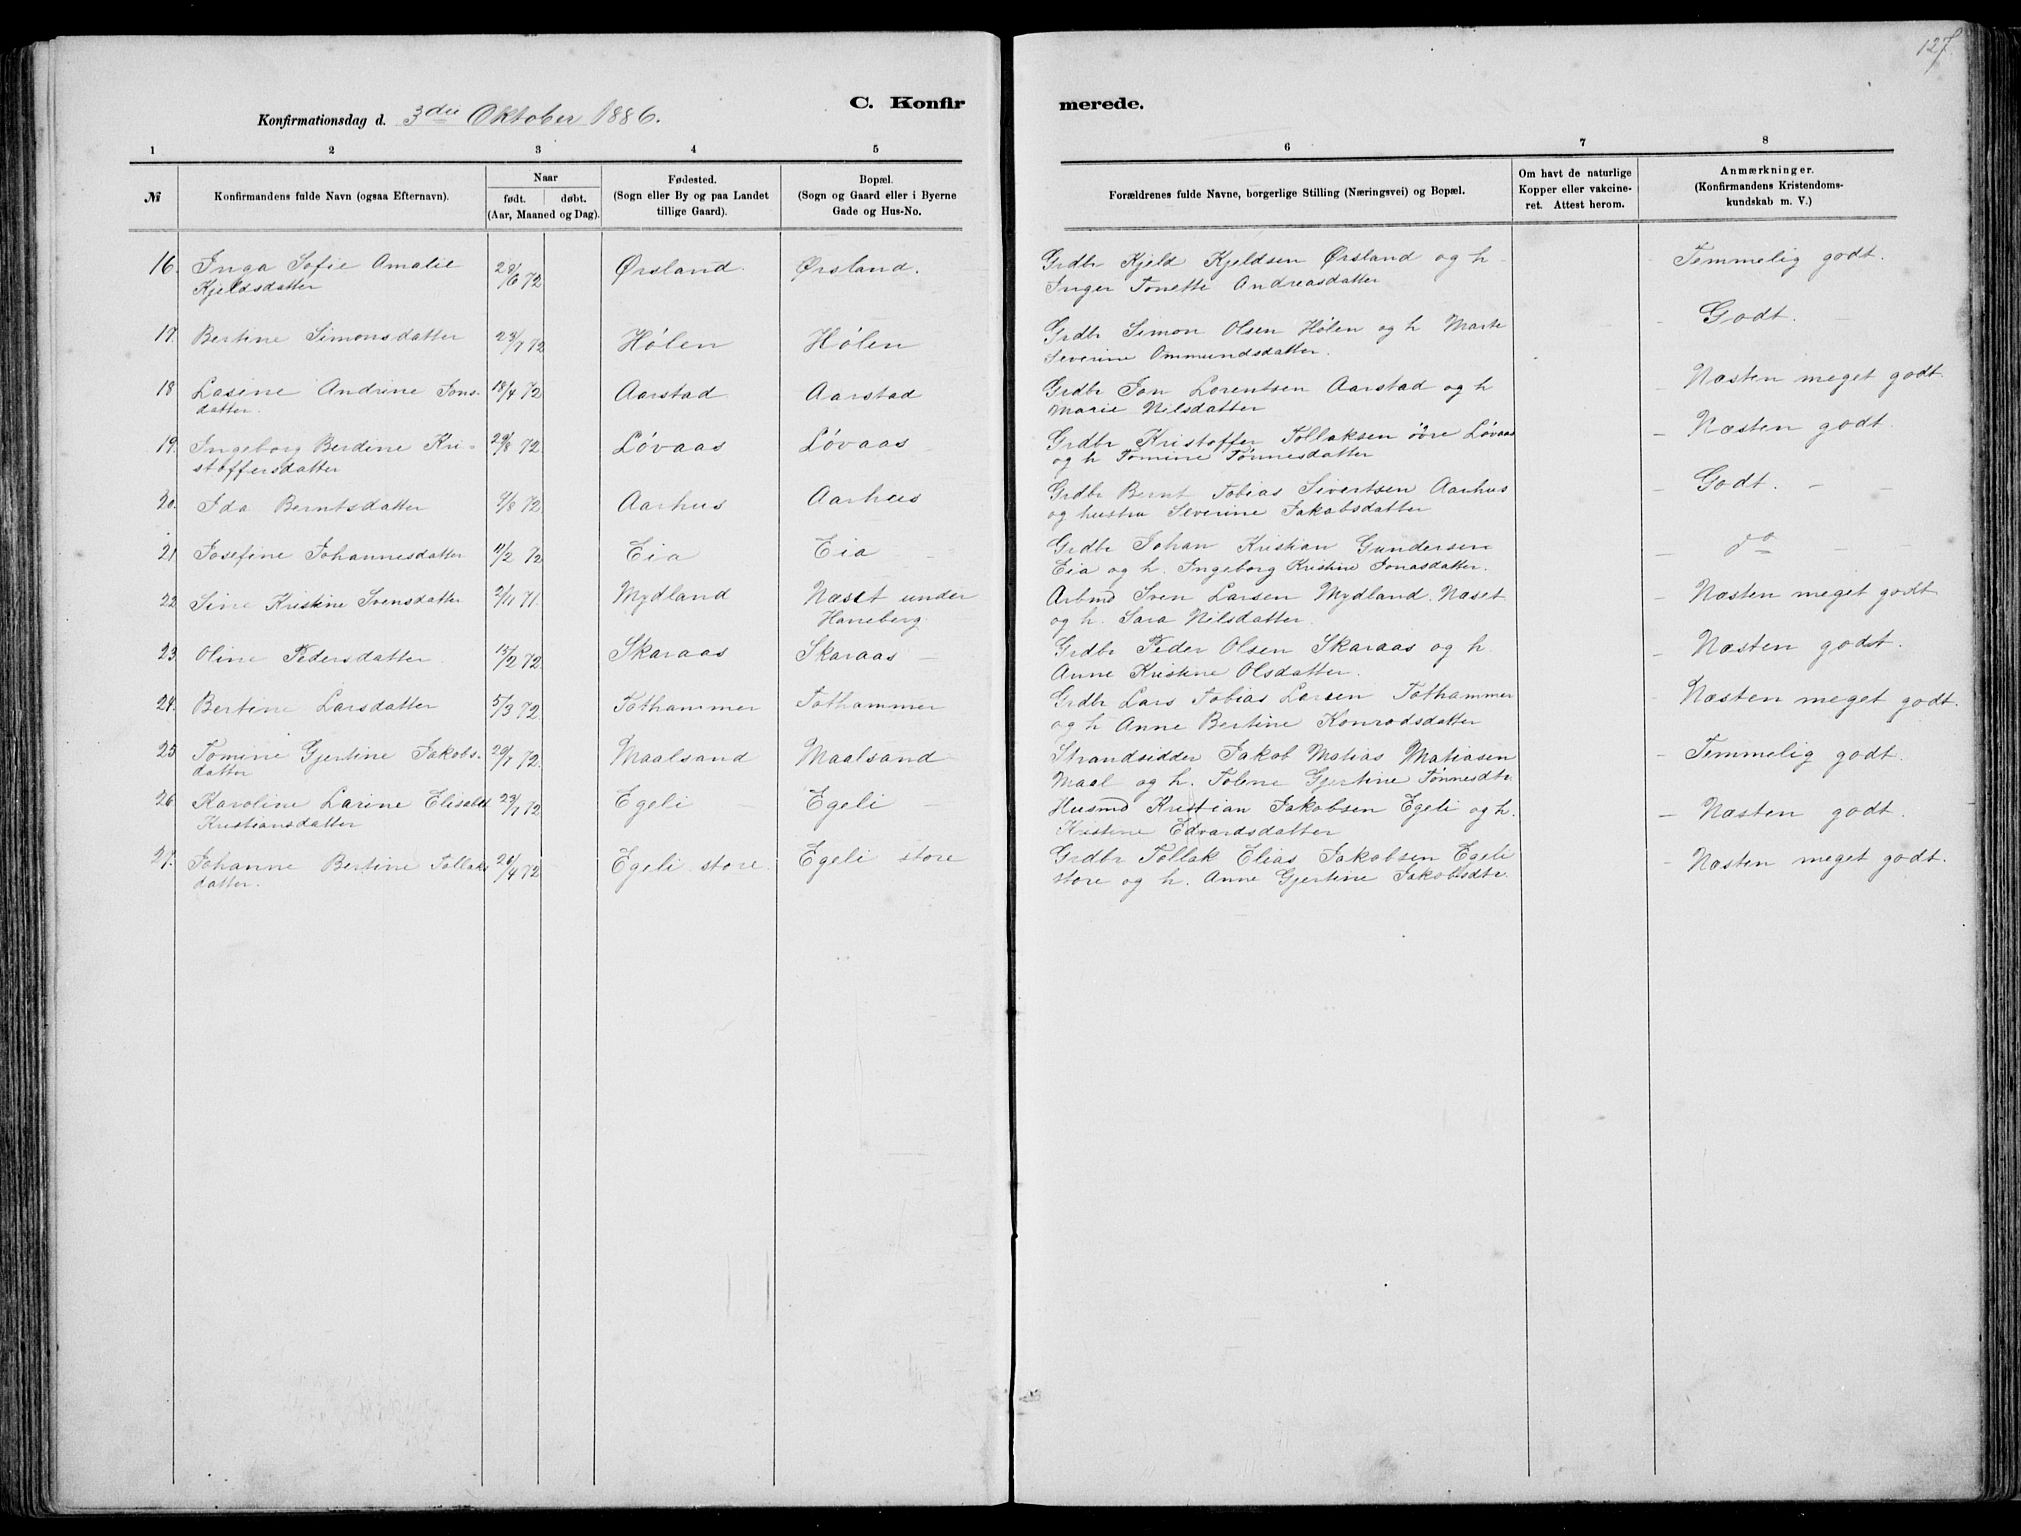 127.
C. Konfirmerede.
Konfirmationsdag d. 3die Oktober 1886.
1 2 3 4 5 6 7 8
№ Konfirmandens fulde Navn (ogsaa Efternavn). Naar født. døbt. (Aar, Maaned og Dag). Fødested. (Sogn eller By og paa Landet tillige Gaard). Bopæl. (Sogn og Gaard eller i Byerne Gade og Hus-No. Forældrenes fulde Navne, borgerlige Stilling (Næringsvei) og Bopæl. Om havt de naturlige Kopper eller vakcineret. Attest herom. Anmærkninger. (Konfirmandens Kristendomskundskab m. V.)
16. Inga Sofie Amalie 28/6 72 Ørsland. Ørsland. Grdbr Kjeld Kjeldsen Ørsland og h Temmelig godt.
Kjeldsdatter Inger Tonette Andreasdatter
17. Bertine Simonsdatter 23/7 72 Hølen Hølen Grdbr Simon Olsen Hølen og h Marte - Godt. -
Severine Ommundsdatter.
18 Lasine Andrine Jons- 18/4 72 Aarstad Aarstad Grdbr Jon Lorentsen Aarstad og h - Næsten meget godt.
datter. Marie Nilsdatter
19. Ingeborg Berdine Kri- 29/8 72 Løvaas Løvaas Grdbr Kristoffer Tollaksen øvre Løvaas - Næsten godt.
stoffersdatter og h Tomine Tønnesdatter
20. Ida Berntsdatter 9/8 72 Aarhus Aarhus Grdbr Bernt Tobias Sivertsen Aarhus - Godt. - -
og hustru Severine Jakobsdatter
21 Josefine Johannesdatter 11/2 72 Eia Eia - Grdbr Johan Kristian Gundersen - do - -
Eia og h. Ingeborg Kristine Jonasdatter.
22 Sine Kristine Svensdatter 2/11 71. Mydland Næset under Arbmd Sven Larsen Mydland. Næset - Næsten meget godt
Haneberg og h. Sara Nilsdatter.
23 Oline Pedersdatter. 13/2 72 Skaraas Skaraas - Grdbr Peder Olsen Skaraas og h. - Næsten godt.
Anne Kristine Olsdatter.
24. Bertine Larsdatter 5/3 72. Tothammer Tothammer Grdbr Lars Tobias Larsen Tothammer - Næsten meget godt.
og h Anne Bertine Konradsdatter
25 Tomine Gjertine Jakobs- 29/7 72. Maalsand Maalsand Strandsidder Jakob Matias Matiasen - Temmelig godt.
datter Maal og h. Tolene Gjertine Tønnesdtr
26 Karoline Larine Elisabet 23/7 72 Egeli - Egeli - Husmd Kristian Jakobsen Egeli og h. - Næsten godt.
Kristiansdatter Kristine Edvardsdatter
27. Johanne Bertine Tollaks 20/4 72 Egeli store. Egeli store Grdbr Tollak Elias Jakobsen Egeli - Næsten meget godt.
datter. store og h. Anne Gjertine Jakobsdtr